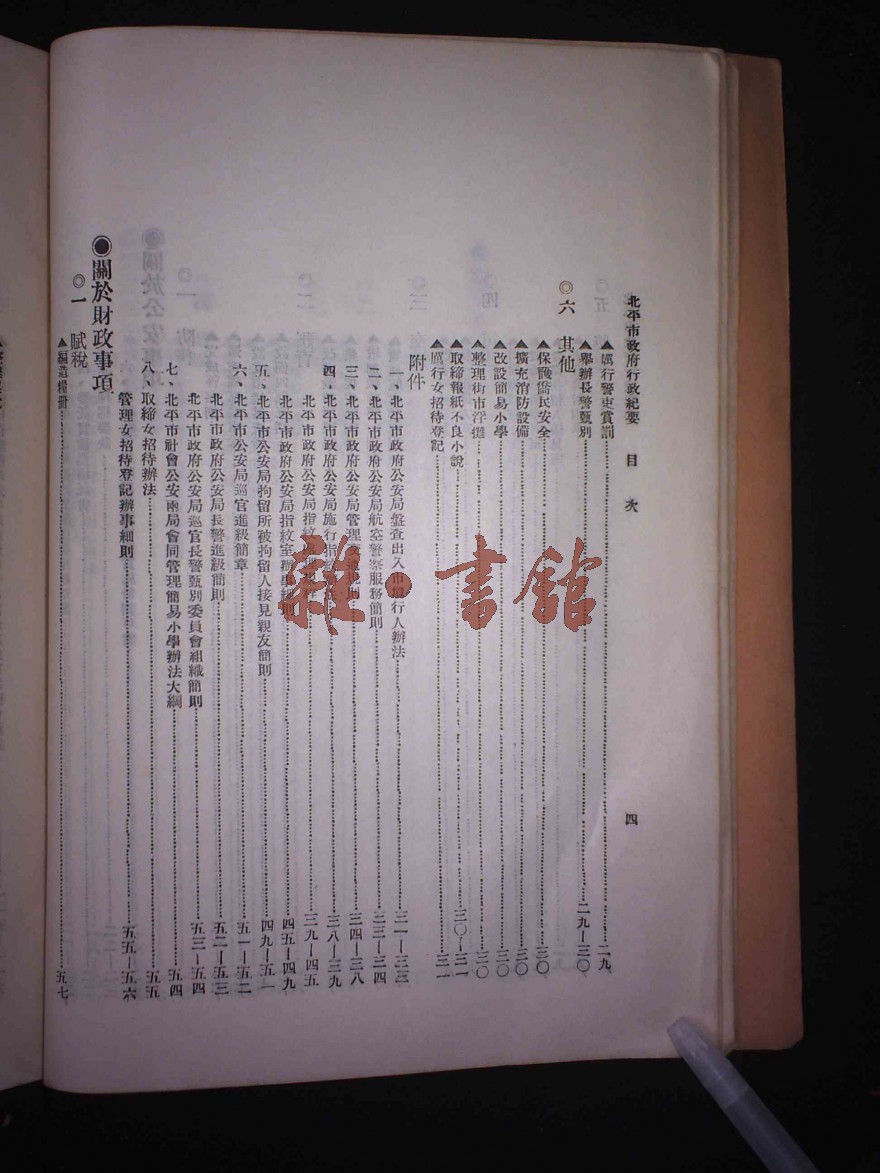 北平市政府行政紀要 目次 四
▲厲行警吏賞罰 二九
▲舉辦長警甄別 二九—三〇
◎六 其他
▲保護僑民安全 三〇
▲擴充消防設備 三〇
▲改設簡易小學 三〇
▲整理街市浮攤 三〇
▲取締報紙不良小說 三〇—三一
▲厲行女招待登記 三一
附件
一、北平市政府公安局盤查出入市區行人辦法 三一—三三
二、北平市政府公安局航空警察服務簡則 三三—三四
三、北平市政府公安局管理交通規則 三四—三八
四、北平市政府公安局施行指紋 三八—三九
北平市政府公安局指紋 三九—四五
北平市政府公安局指紋室辦事細則 四五—四九
五、北平市公安局拘留所被拘留人接見親友簡則 四九—五一
六、北平市公安局巡官進級簡章 五一—五二
北平市政府公安局長警進級簡則 五二—五三
北平市政府公安局巡官長警甄別委員會組織簡則 五三—五四
七、北平市社會公安兩局會同管理簡易小學辦法大綱 五四
八、取締女招待辦法 五五
管理女招待登記辦事細則 五五—五六
◉關於財政事項
◎一 賦稅
▲編造糧冊 五七
雜·書館